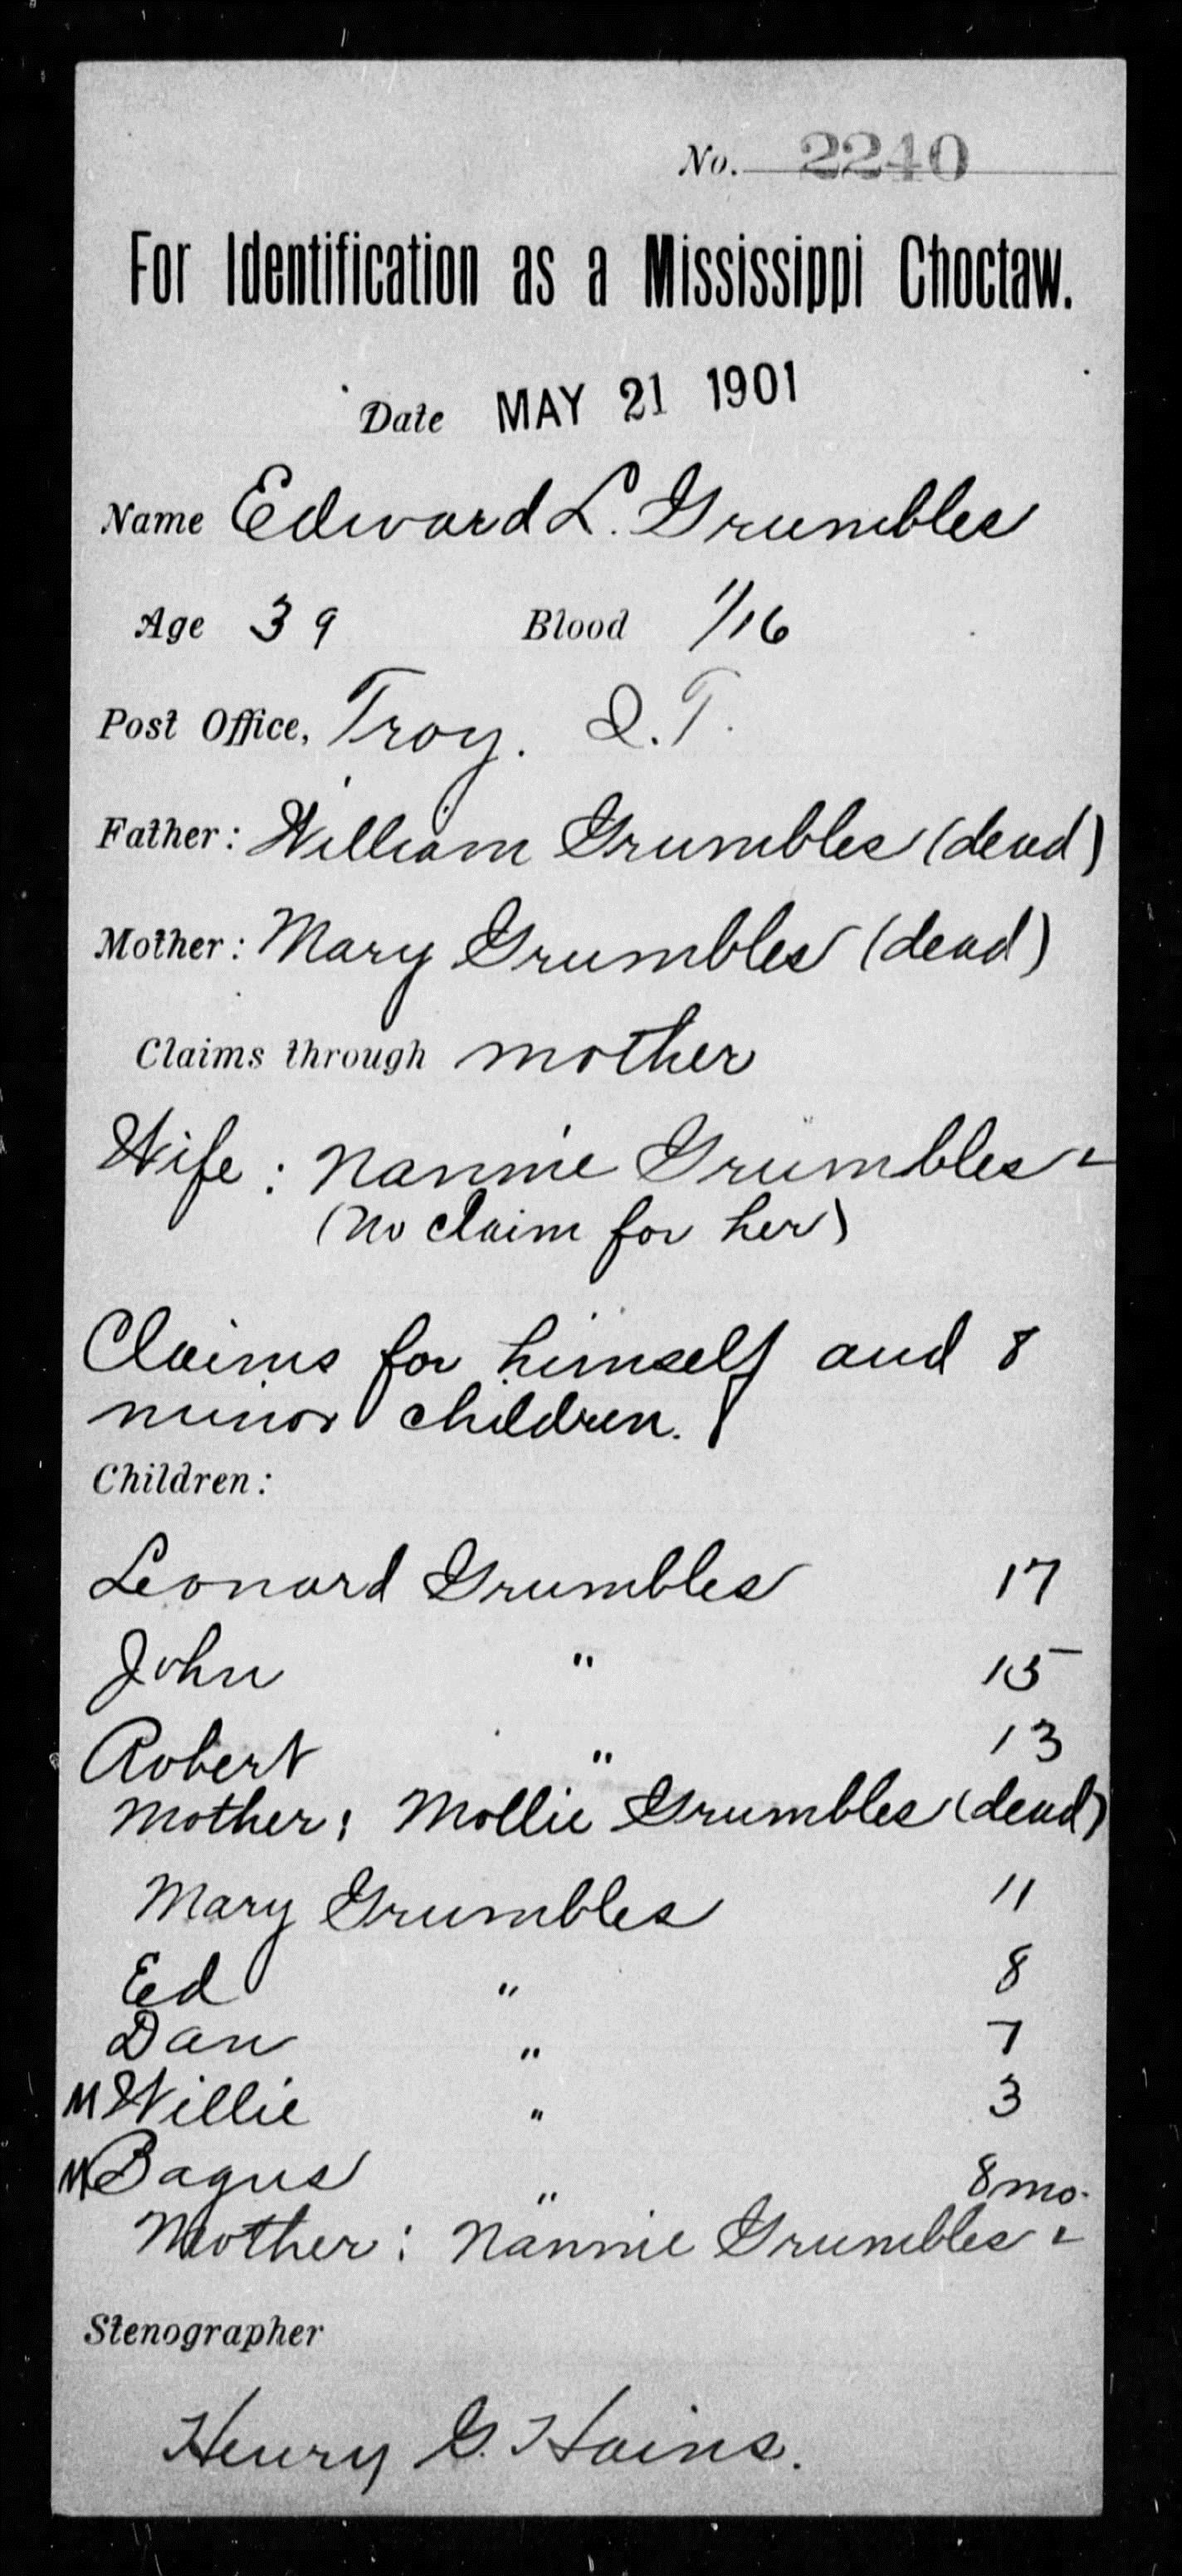 No. 2240
For Identification as a Mississippi Choctaw.
Date MAY 21 1901
Name Edward L. Grumbles
Age 39 Blood 1/16
Post Office, Troy. I.T.
Father: William Grumbles (dead)
Mother: Mary Grumbles (dead)
Claims through mother
Wife: Nannie Grumbles
(No claim for her)
Claims for himself and 8
minor children.
Children:
Leonard Grumbles 17
John " 15
Robert " 13
Mother: Mollie Grumbles (dead)
Mary Grumbles 11
Ed " 8
Dan " 7
M Willie " 3
M Bagus " 8 mo.
Mother: Nannie Grumbles
Stenographer
Henry G. Hains.